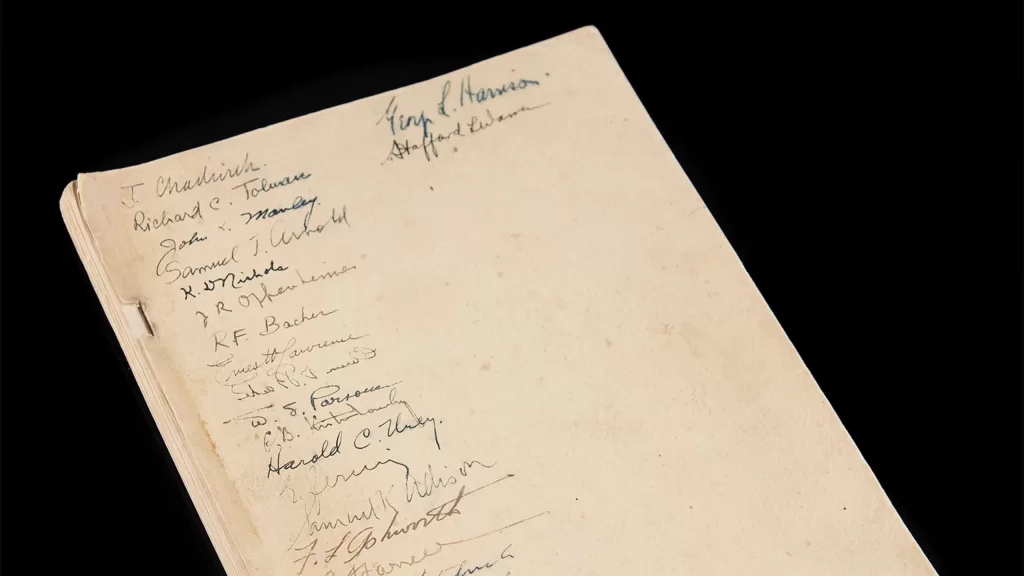 George L. Harrison.
Stafford L Warren
J. Chadwick.
Richard C. Tolman
John H. Manley.
Samuel T. Arnold
K. D Nichols
J R Oppenheimer
R.F. Bacher
Ernest O Lawrence
W. S. Parsons
Harold C. Urey.
E. Fermi
Samuel K Allison
F. L. Ashworth